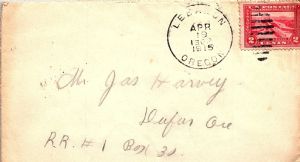 LEBANON
APR
19
1915
OREGON
2 CENTS 2
Mr Jas Harvey
Dufur Ore
R.R. #1 Box 30